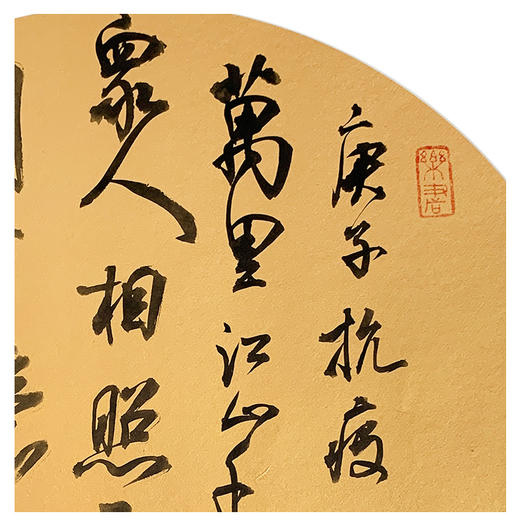 樂書
庚子抗疫
萬里江山千
衆人相照